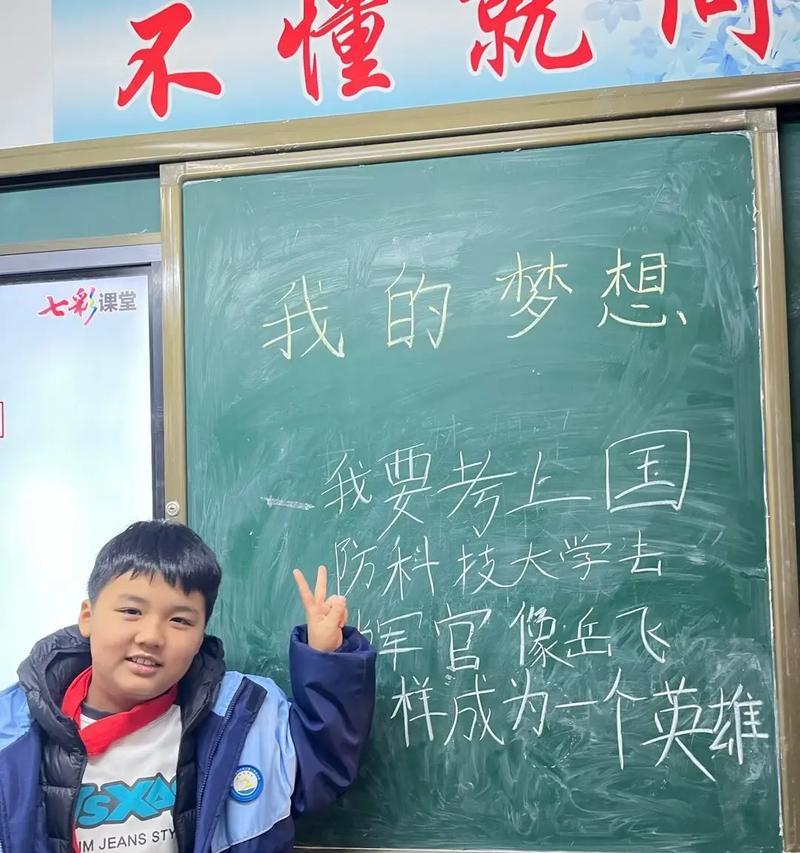 不懂就问
七彩课堂
我的梦想
我要考上国
防科技大学去
军官像岳飞
样成为一个英雄
JEANS STY